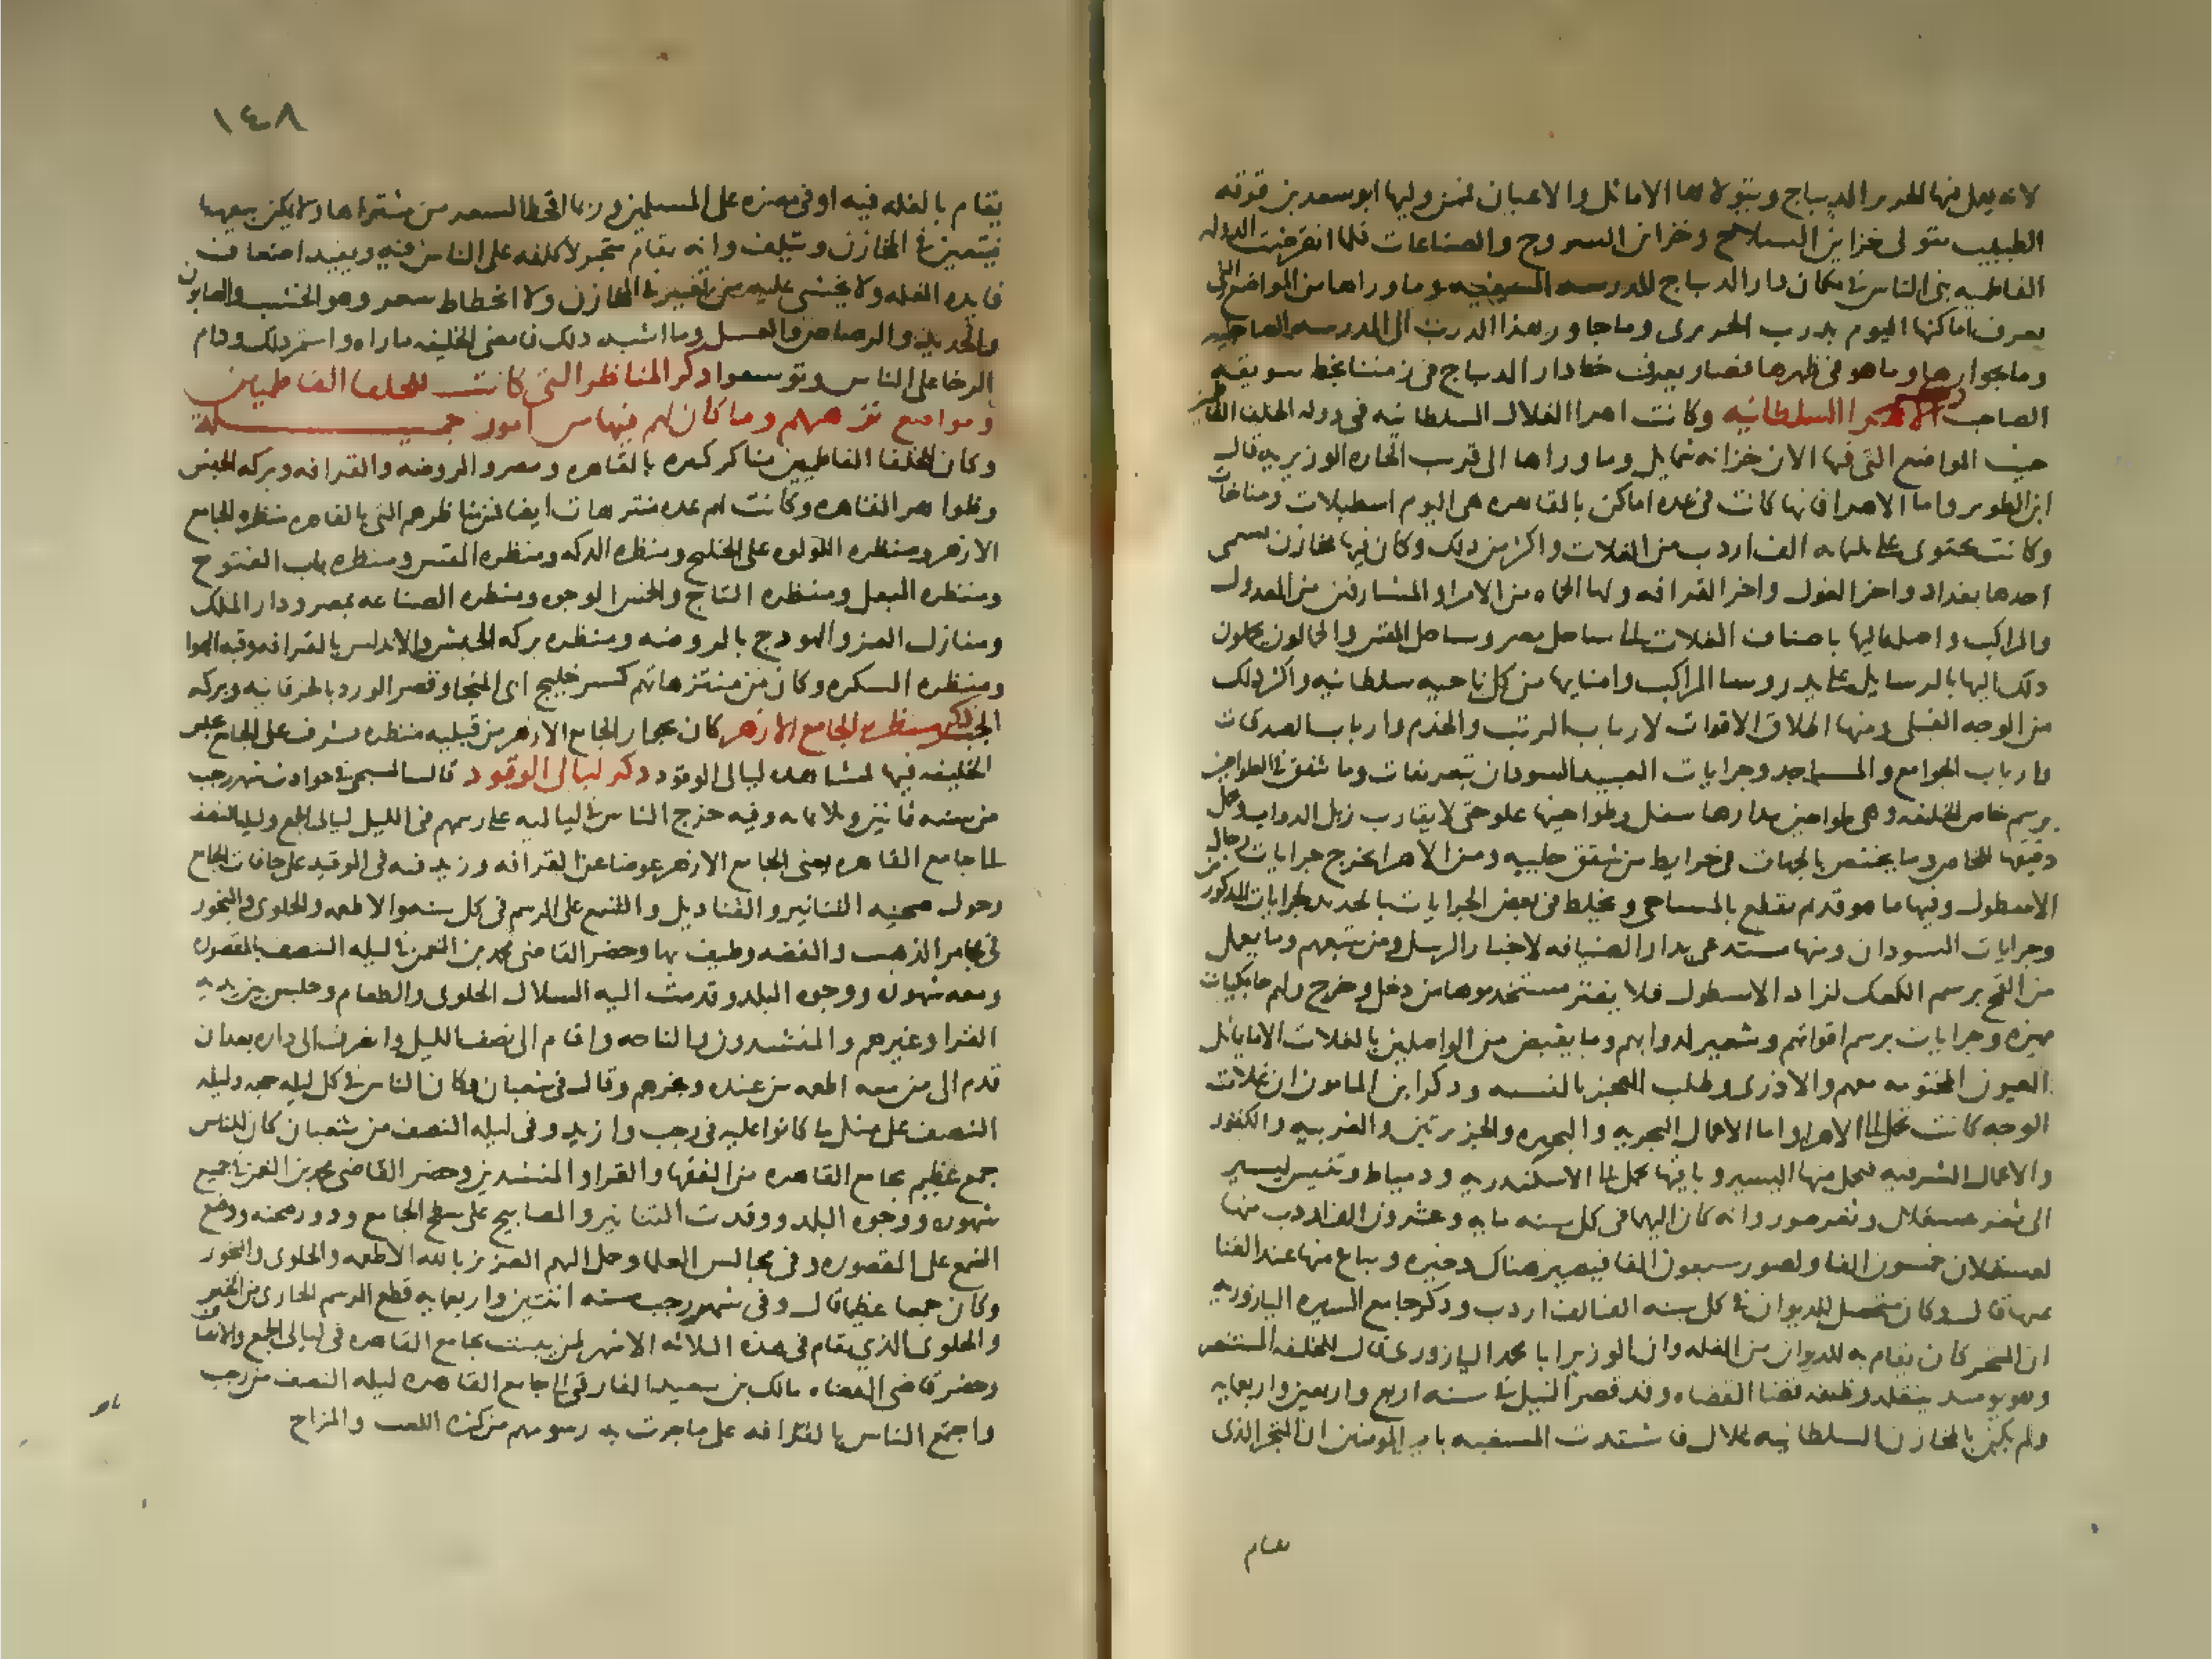 لانه يعمل فيها الحرير الديباج ويتولاها الاماثل والاعيان فمن وليها ابو سعد بن قرقه
الطبيب متولى خزاين السلاح وخزاين السروج والصناعات فلما انقرضت الدوله
الفاطميه بنى الناس فى مكان دار الديباج المدرسه السيفيه وما وراها من المواضع التى
يعرف اماكنها اليوم بدرب الحريرى وما جاور هذا الدرب الى المدرسه الصاحبيه
وما بجوارها وما هو فى ظهرها فصار يعرف خط دار الديباج فى زمننا بخط سويقه
الصاحب الاهرا السلطانيه وكانت اهرا الغلال السلطانيه فى دوله الخلفا الفاطميين
حيث المواضع التى فيها الان خزانه شمايل وما وراها الى قرب الحاره الوزيريه قال
ابن الطوير واما الاهرا فانها كانت فى عده اماكن بالقاهره هى اليوم اسطبلات ومناخات
وكانت تحتوى على ثلثمايه الف اردب من الغلات واكثر من ذلك وكان فيها مخازن تسمى
احدها بغداد واخرا الفول واخرا القرافه ولها الحماه من الامرا والمشارفين من العدول
والمراكب واصله اليها باصناف الغلات الى ساحل مصر وساحل المقس والحمالون يحملون
ذلك اليها بالرسايل على يد روسا المراكب وامنايها من كل ناحيه سلطانيه واكثر ذلك
من الوجه القبلى ومنها اطلاق الاقوات لارباب الرتب والخدم وارباب الصدقات
وارباب الجوامع والمساجد وجرايات العبيد السودان بتعريفات وما ينفق فى الطواحين
برسم خاص الخليفه وهى طواحين مدارها سفل وطواحينها علو حتى لا يقارب زبل الدواب وحمل
دقيقها للخاص وما يختص بالجهات فى خرايط من شقق حلبيه ومن الاهرا تخرج جرايات رجال
الاسطول وفيها ما هو قديم يقطع بالمساحى ويخلط فى بعض الجرايات بالجديد بجرايات المذكورين
وجرايات السودان ومنها مستدعى بدار الضيافه لاخبار الرسل ومن يتبعهم وما يعمل
من القمح برسم الكعك لزاد الاسطول فلا يفتر مستخدموها من دخل وخرج ولهم جامكيات
مميزه وجرايات برسم اقواتهم وشعير لدوابهم وما يقبض من الواصلين بالغلات الا ما يماثل
العيون المختومه معهم والا ذرى وطلب العجز بالنسبه وذكر ابن المامون ان غلات
الوجه كانت تحمل الى الاهرا واما الاعمال البحريه والبحيره والجيزيتين والغربيه والكفور
والاعمال الشرقيه فيحمل منها اليسير وباقيها يحمل الى الاسكندريه ودمياط وتنيس ليسير
الى ثغر عسقلان وثغر صور وانه كان اليها فى كل سنه مايه وعشرون الف اردب منها
لعسقلان خمسون الفا ولصور سبعون الفا فيصير هناك ذخيره ويباع منها عند الغنا
عنها قال وكان متحصل الديوان فى كل سنه الف الف اردب وذكر جامع السيره اليازوريه
ان المتجر كان يقام به للديوان من الغله وان الوزير ابا محمد اليازورى قال للخليفه المستنصر
وهو يوميذ يتقلد وظيفه قضا القضاه وقد قصر النيل فى سنه اربع واربعين واربعمايه
ولم يكن بالمخازن السلطانيه غلال فاشتدت المسغبه يا امير المومنين ان المتجر الذى
يقام
١٤٨
يقام بالغله فيه اوفى مضره على المسلمين وربما انحط السعر من مشتراها ولا يمكن بيعها
فتتعير فى المخازن وتتلف وانه يقام متجر لا كلفه على الناس فيه ويفيد اضعاف
فايده الغله ولا يخشى عليه من تغير فى المخازن ولا انحطاط سعر وهو الخشب والصابون
والحديد والرصاص والعسل وما اشبه ذلك فامضى الخليفه ما راه واستمر ذلك ودام
الرخا على الناس وتوسعوا ذكر المناظر التى كانت للخلفا الفاطميين
ومواضع نزههم وما كان لهم فيها من امور جميله
وكان للخلفا الفاطميين مناظر كثيره بالقاهره ومصر والروضه والقرافه وبركه الحبش
وظواهر القاهره وكانت لهم عده منتزهات ايضا فمن مناظرهم التى بالقاهره منظره الجامع
الازهر ومنظره اللولوه على الخليج ومنظره الدكه ومنظره المقس ومنظره باب الفتوح
ومنظره البعل ومنظره التاج والخمس الوجوه ومنظره الصناعه بمصر ودار الملك
ومنازل العز والهودج بالروضه ومنظره بركه الحبش والاندلس بالقرافه وقبه الهوا
ومنظره السكره وكان من منتزهاتهم كسر خليج ابى المنجا وقصر الورد بالخرقانيه وبركه
الجب ذكر منظره الجامع الازهر كان بجوار الجامع الازهر من قبليه منظره تشرف على الجامع يجلس
الخليفه فيها لمشاهده ليالى الوقود ذكر ليالى الوقود قال المسبحى فى حوادث شهر رجب
من سنه ثمانين وثلاثمايه وفيه خرج الناس فى لياليه على رسمهم فى الليل ليالى الجمع وليله النصف
الى جامع القاهره يعنى الجامع الازهر عوضا عن القرافه وزيد فيه فى الوقيد على حافات الجامع
وحول صحنه التنانير والقناديل والشمع على الرسم فى كل سنه والاطعمه والحلوى والبخور
فى مجامر الذهب والفضه وطيف بها وحضر القاضى محمد بن النعمن فى ليله النصف بالمقصوره
ومعه شهوده ووجوه البلد وقدمت اليه السلال الحلوى والطعام وجلس بين يديه
القرا وغيرهم والمنشدون والناحه واقام الى نصف الليل وانصرف الى داره بعد ان
قدم الى من معه اطعمه من عنده وبخرهم وقال فى شعبان وكان الناس فى كل ليله جمعه وليله
النصف على مثل ما كانوا عليه فى رجب وازيد وفى ليله النصف من شعبان كان للناس
جمع عظيم بجامع القاهره من الفقها والقرا والمنشدين وحضر القاضى محمد بن النعمن فى جميع
شهوده ووجوه البلد ووقدت التنانير والمصابيح على سطح الجامع ودور صحنه ووضع
الشمع على المقصوره وفى مجالس العلما وحمل اليهم العزيز بالله الاطعمه والحلوى والبخور
وكان جمعا عظيما قال وفى شهر رجب سنه اثنتين واربعمايه قطع الرسم الجارى من الخبز
والحلوى الذى يقام فى هذه الثلاثه الاشهر لمن يبيت بجامع القاهره فى ليالى الجمع والانصاف
وحضر قاضى القضاه مالك بن سعيد الفارقى الى جامع القاهره ليله النصف من رجب
واجتمع الناس بالقرافه على ما جرت به رسومهم من كثره اللعب والمزاح